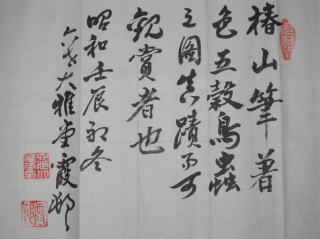 椿山筆著
色五穀鳥蟲
之圖真蹟而可
観賞者也
昭和壬辰初冬
大雅堂霞邨